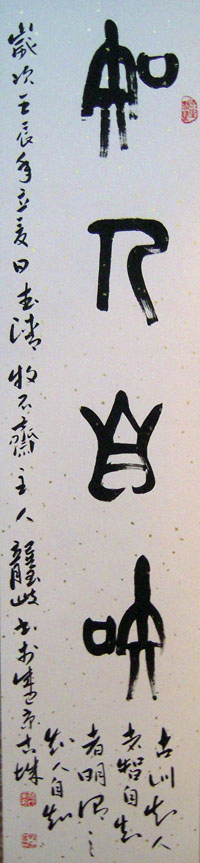 知人自知
古训知人
者智自知
者明谓之
知人自知
歲次壬辰年立夏日 牧石齋主人 書於 京古城